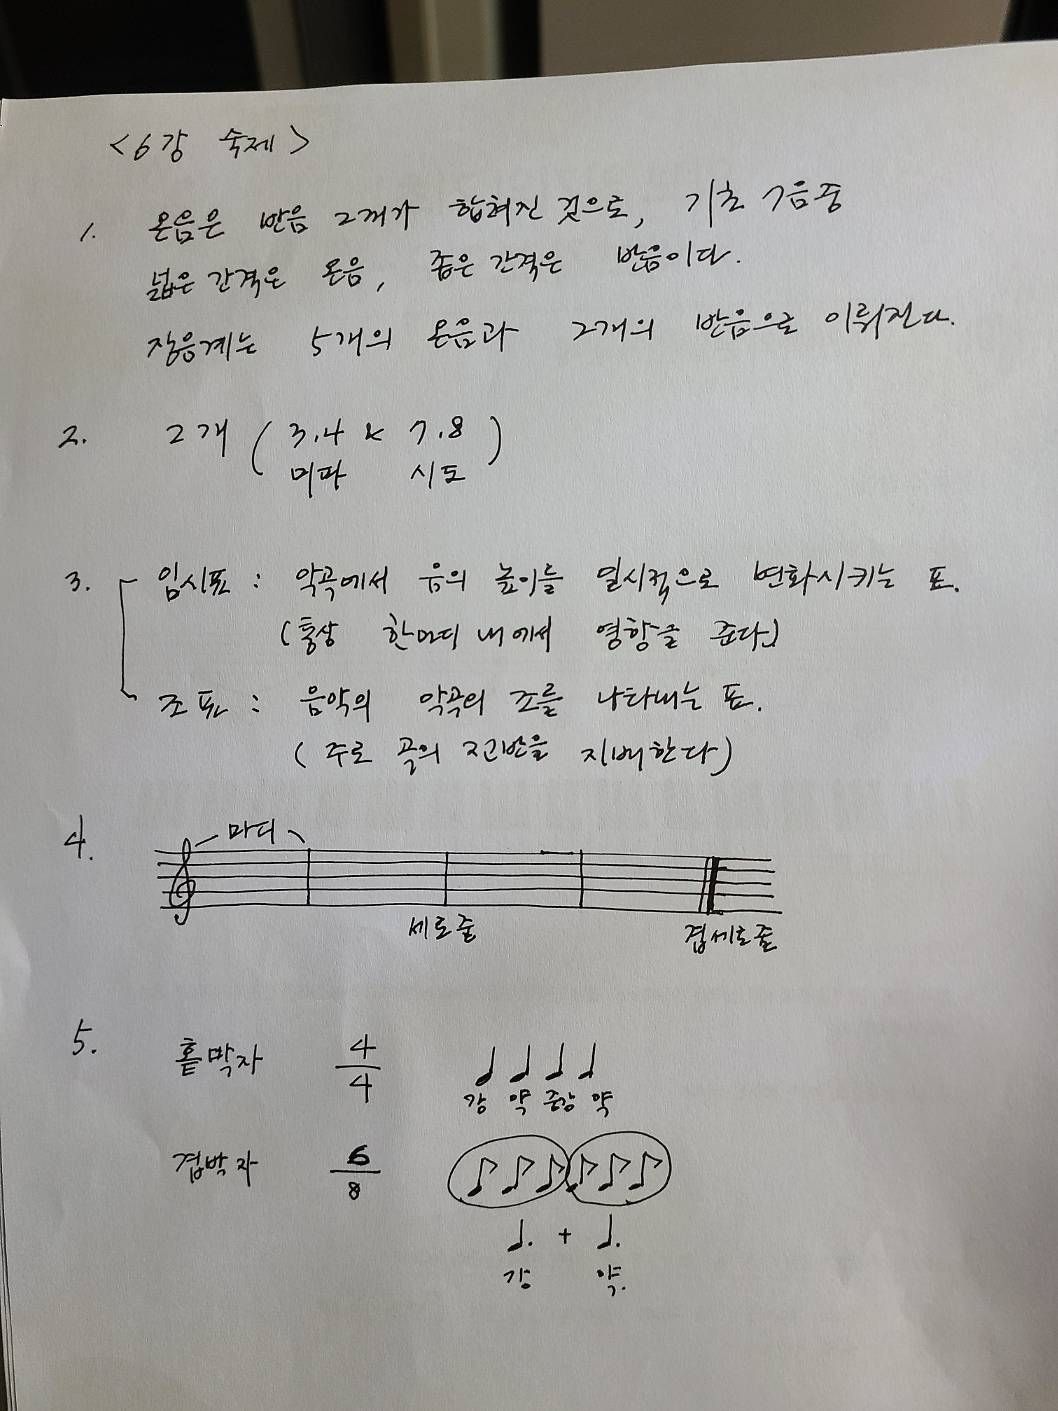 <6강 숙제>
1. 온음은 반음 2개가 합혀진 것으로, 기초 7음중
넓은 간격은 온음, 좁은 간격은 반음이다.
장음계는 5개의 온음과 2개의 반음으로 이뤄진다.
2. 2개 ( 3.4 & 7.8 )
미파 시도
3. 임시표 : 악곡에서 음의 높이를 일시적으로 변화시키는 표.
(통상 한마디 내에서 영향을 준다.)
조표 : 음악의 악곡의 조를 나타내는 표.
( 주로 곡의 전반을 지배한다)
4. 마디
세로줄 겹세로줄
5. 홑박자 4/4
강 약 중강 약
겹박자 6/8
+
강 약.